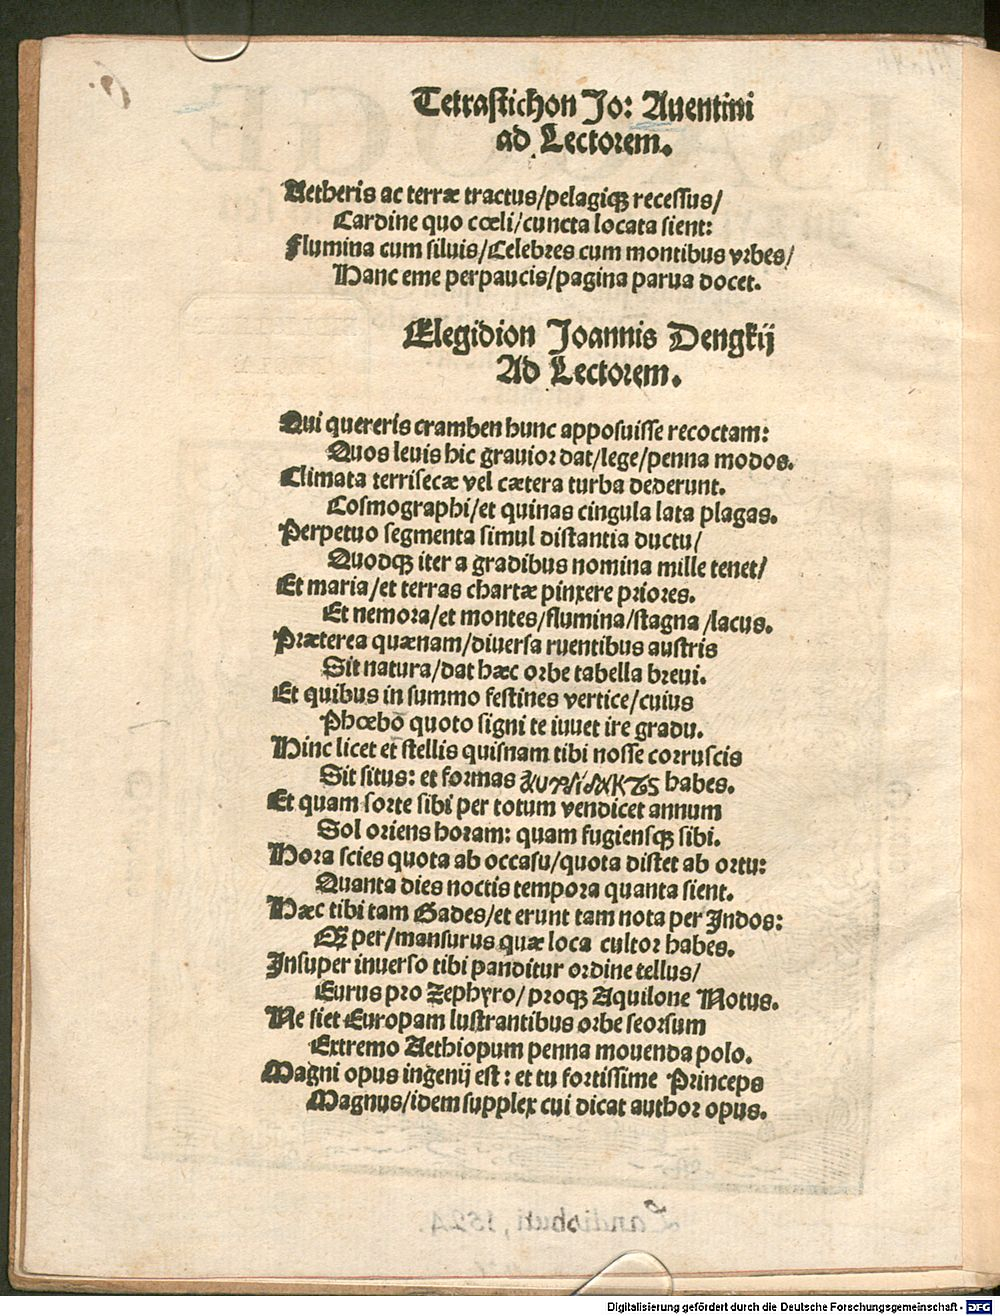 Tetrastichon Jo: Auentini
ad Lectorem.
Aetheris ac terræ tractus/pelagiqꝫ recessus/
Cardine quo cœli/cuncta locata sient:
Flumina cum siluis/Celebres cum montibus vrbes/
Hanc eme perpaucis/pagina parua docet.
Elegidion Joannis Dengkij
Ad Lectorem.
Qui quereris cramben hunc apposuisse recoctam:
Quos leuis hic grauior dat/lege/penna modos.
Climata terrisecæ vel cætera turba dederunt.
Cosmographi/et quinas cingula lata plagas.
Perpetuo segmenta simul distantia ductu/
Quodqꝫ iter a gradibus nomina mille tenet/
Et maria/et terras chartæ pinxere priores.
Et nemora/et montes/flumina/stagna /lacus.
Præterea quænam/diuersa ruentibus austris
Sit natura/dat hæc orbe tabella breui.
Et quibus in summo festines vertice/cuius
Phœbo quoto signi te iuuet ire gradu.
Hinc licet et stellis quisnam tibi nosse corruscis
Sit situs: et formas habes.
Et quam sorte sibi per totum vendicet annum
Sol oriens horam: quam fugiensqꝫ sibi.
Hora scies quota ab occasu/quota distet ab ortu:
Quanta dies noctis tempora quanta sient.
Hæc tibi tam Gades/et erunt tam nota per Indos:
per/mansurus quæ loca cultor habes.
Insuper inuerso tibi panditur ordine tellus/
Eurus pro Zephyro/proqꝫ Aquilone Notus.
Ne siet Europam lustrantibus orbe seorsum
Extremo Aethiopum penna mouenda polo.
Magni opus ingenij est: et tu fortissime Princeps
Magnus/idem supplex cui dicat author opus.
Landishuti, 1524.
Digitalisierung gefördert durch die Deutsche Forschungsgemeinschaft - DFG